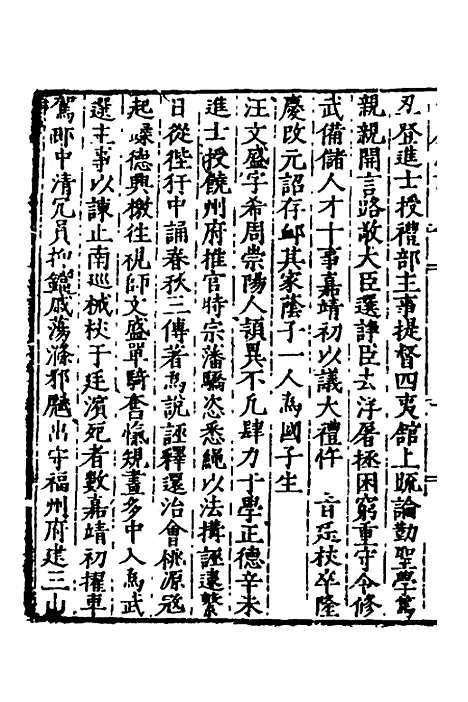 登進士授禮部主事提督四夷舘上䟽論勤聖學篤
親親開言路敬大臣選諍臣去浮屠拯困窮重守令修
武備儲人才十事嘉靖初以議大禮忤 旨廷杖卒隆
慶改元詔存䘏其家蔭子一人為國子生
汪文盛字希周崇陽人頴異不凡肆力于學正德辛未
進士授饒州府推官時宗潘驕恣悉䋲以法搆誣逮繫
日從徃犴中誦春秋三傳著為說誣釋還治會桃源冦
起嵊德興檄往視師文盛單騎奮愾規畫多中入為武
選主事以諫止南巡械杖于廷濱死者數嘉靖初擢車
駕郎中清冗員抑鎮戚蕩滌邪魑出守福州府建三山